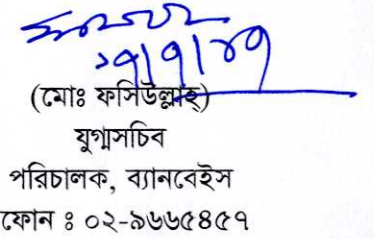 (মোঃ ফসিউল্লাহ্)
যুগ্মসচিব
পরিচালক, ব্যানবেইস
ফোন ঃ ০২-৯৬৬৫৪৫৭